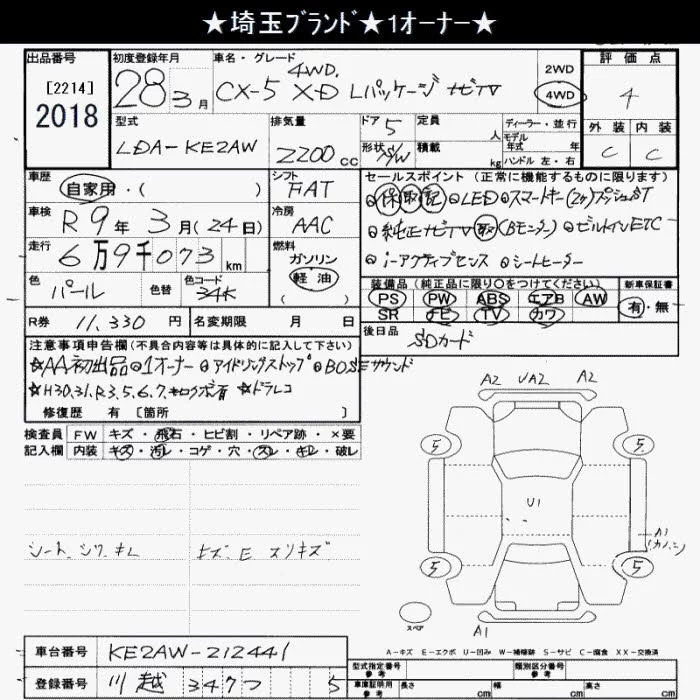 ★埼玉ﾌﾞﾗﾝﾄﾞ★1オーナー★
出品番号 [2214] 2018
初度登録年月 28 3月
車名・グレード 4WD. CX-5 XD Lパッケージ ナビTV
2WD 4WD
評価点 4
外装 C 内装 C
型式 LDA-KE2AW
排気量 2200cc
ドア 5
形状 S/W
定員 人
積載 kg
ディーラー・並行
モデル年式 年式
ハンドル 左・右
車歴 自家用・( )
シフト FAT
車検 R9年3月(24日)
冷房 AAC
走行 6万9千073km
燃料 ガソリン 軽油 ( )
色 パール 色替 色コード 34K
セールスポイント(正常に機能する物に限ります)
保 取 記 ◎LED ◎スマートキー(2ヶ)プッシュST
◎純正ナビTV 取 (Bモニター) ◎ビルトインETC
◎i-アクティブセンス ◎シートヒーター
装備品(純正品に限り○をつけてください)
PS PW ABS エアB AW
SR TV カワ
新車保証書 有・無
R券 11,330円 名変期限 月 日
後日品 SDカード
注意事項申告欄(不具合内容等は具体的に記入して下さい)
☆AA初出品 ◎1オーナー ◎アイドリングストップ ◎BOSEサウンド
☆H30,31,R3,5,6,7,キロク ☆ドラレコ
修復歴 有 [箇所 ]
検査員記入欄
FW キズ・飛石・ヒビ割・リペア跡・×要
内装 キズ・汚レ・コゲ・穴・スレ・キレ・破レ
シート、シワ、キレ
キズ、E スリキズ
A2 UA2 A2
5 5
U1
A1
5 5
スペア
A1
A-キズ E-エクボ U-凹み W-補修跡 S-サビ C-腐食 XX-交換済
車台番号 KE2AW-212441
登録番号 川越 347 5
型式指定番号 参考
類別区分番号 参考
車庫証明用 参考 長さ cm 幅 cm 高さ cm